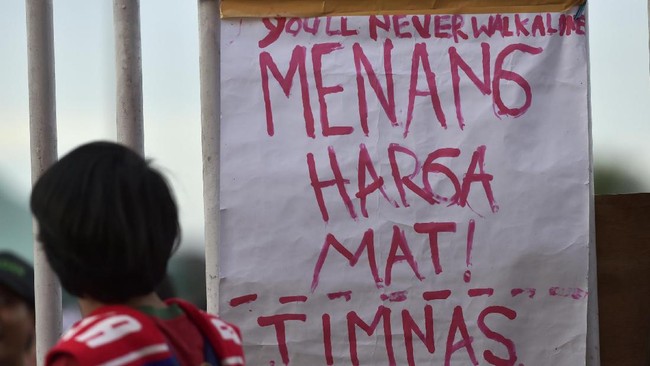 YOU'LL NEVER WALK ALONE
MENANG
HARGA
MAT!
TIMNAS